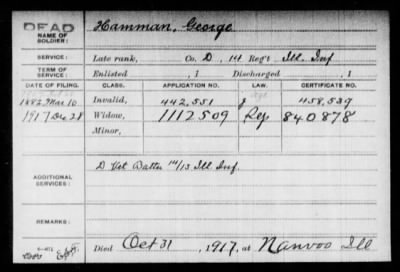 DEAD
NAME OF SOLDIER:
Hamman, George
SERVICE:
Late rank, Co. D, 1st Reg't Ill. Inf.
TERM OF SERVICE:
Enlisted , 1 Discharged , 1
DATE OF FILING. CLASS. APPLICATION NO. LAW. CERTIFICATE NO.
1882 Mar 10 Invalid, 442,551 458,539
1917 Dec 28 Widow, 1112509 Rep 840878
Minor,
ADDITIONAL SERVICES:
D Vet Battn 14/15 Ill. Inf.
REMARKS:
Died Oct 31, 1917, at Nauvoo Ill